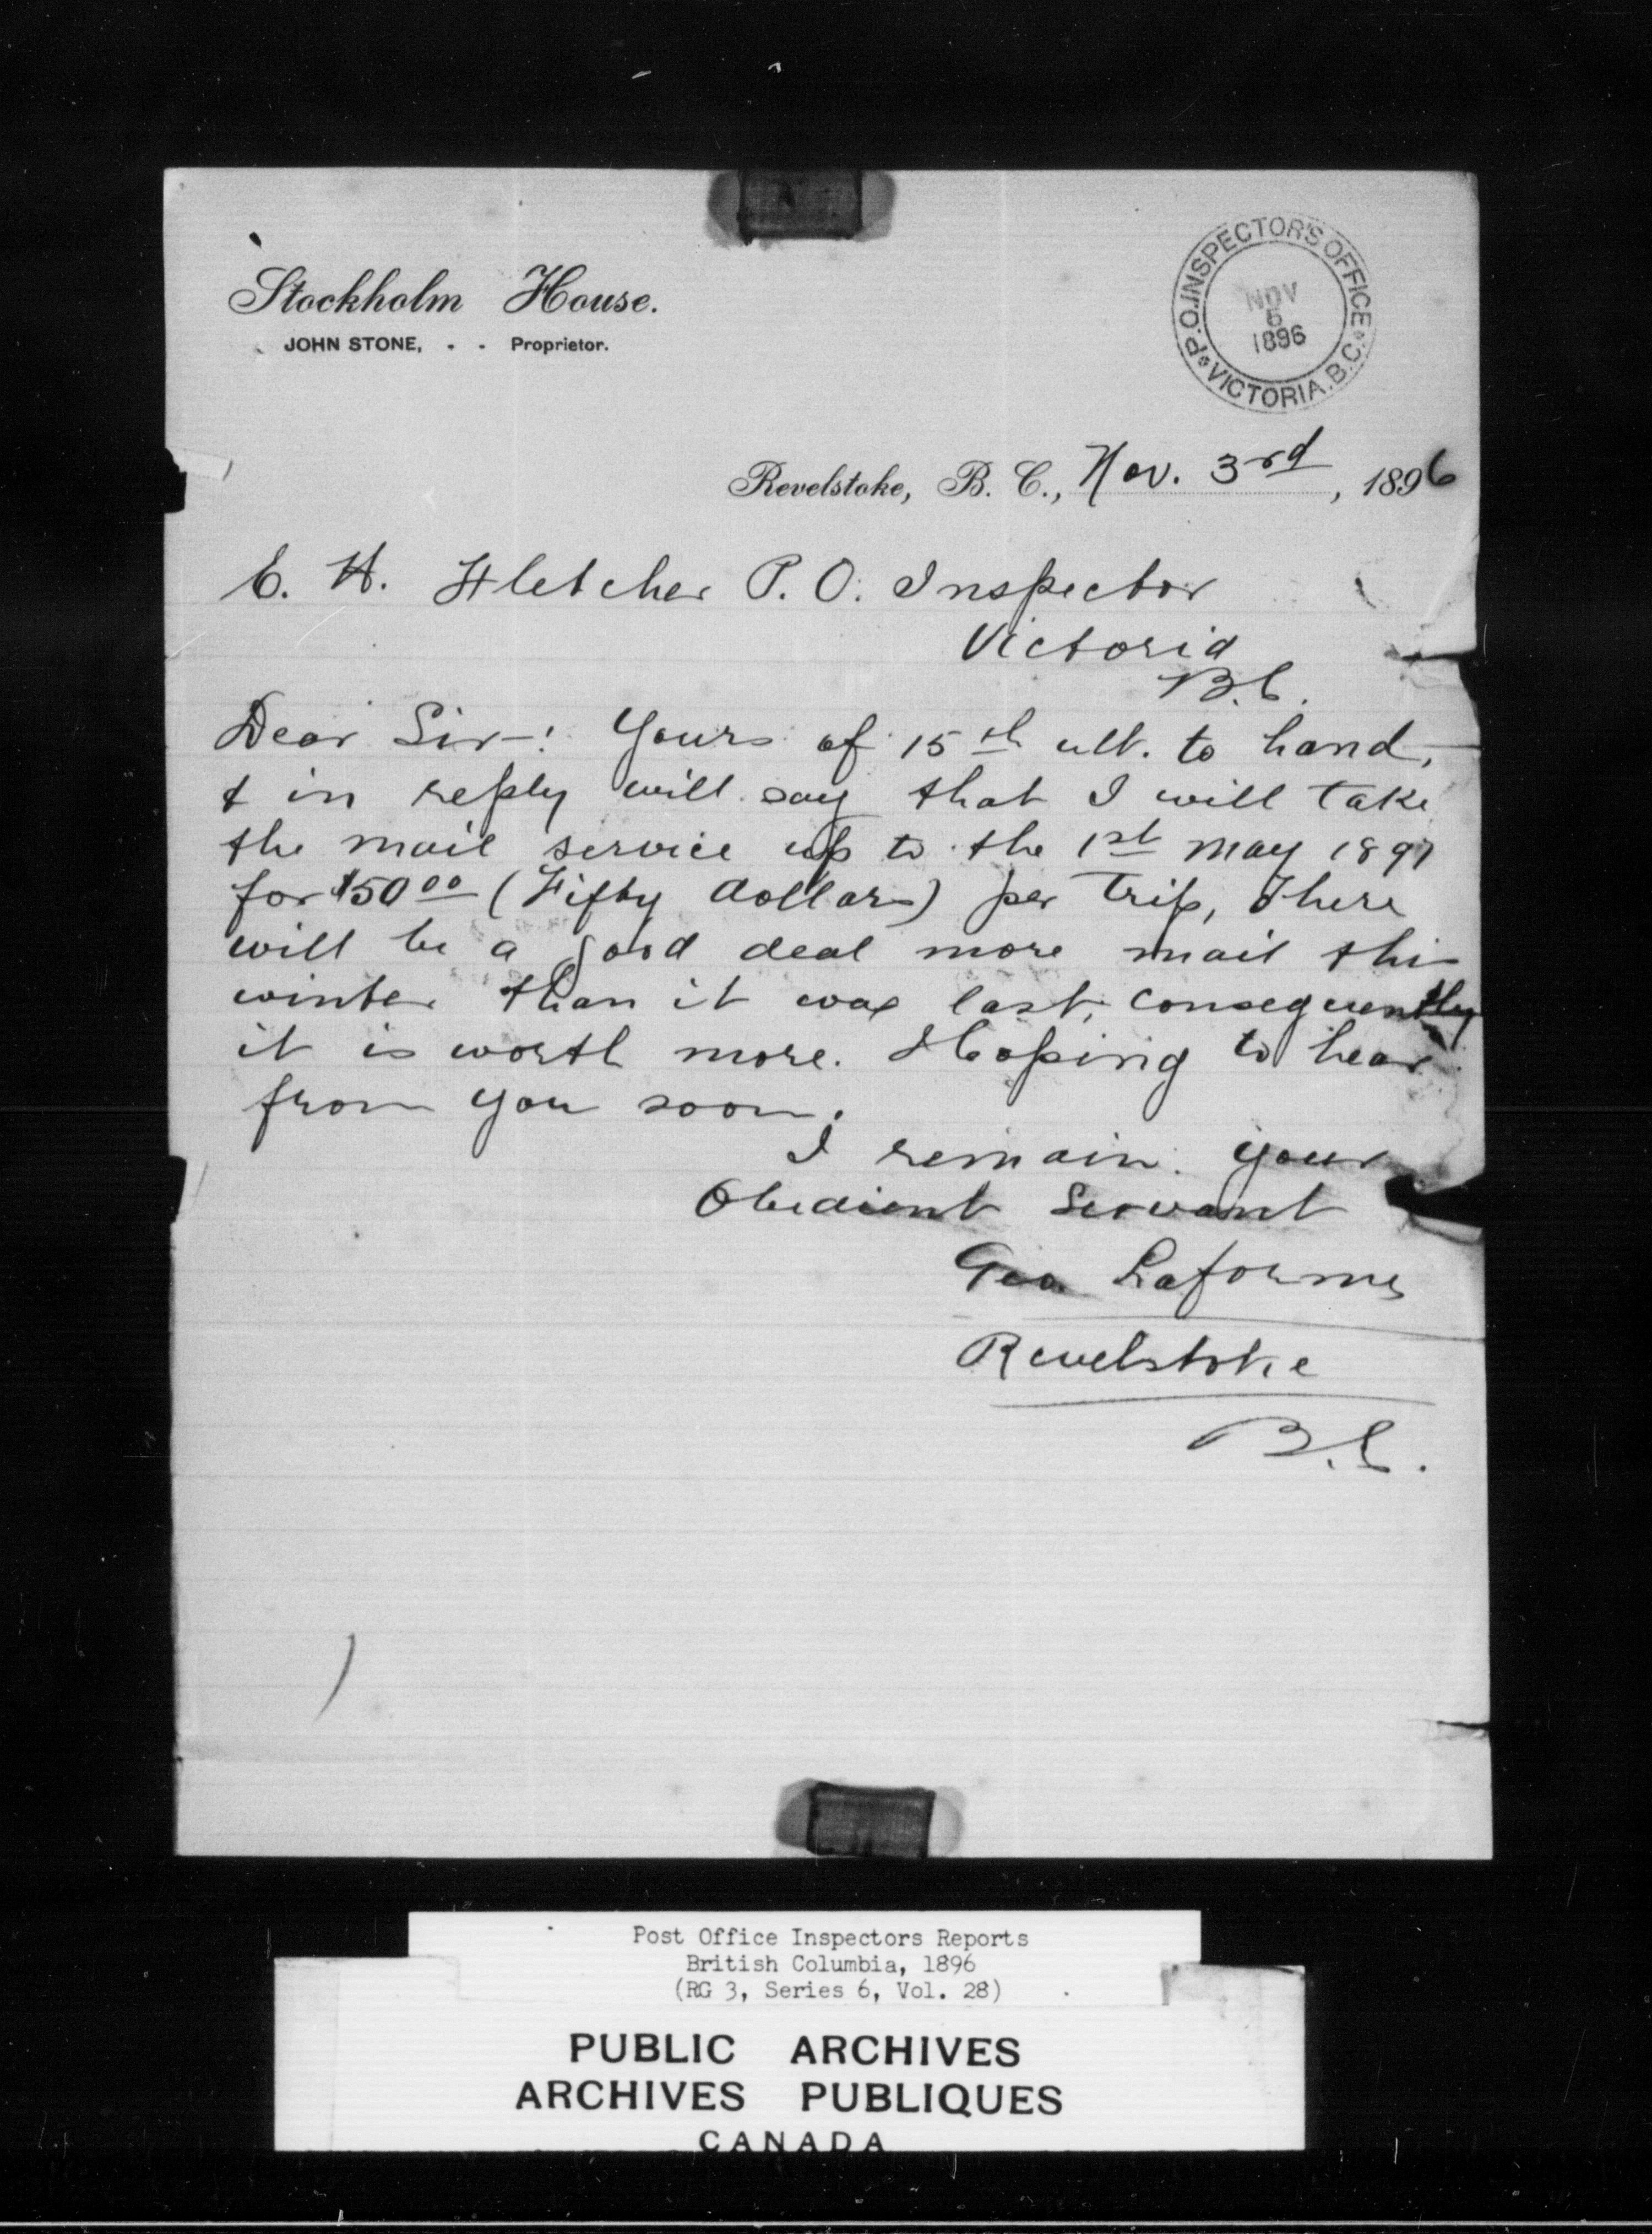 Stockholm House.
JOHN STONE, - - Proprietor.
P.O. INSPECTOR'S OFFICE
NOV
5
1896
VICTORIA. B.C.
Revelstoke, B. C., Nov. 3rd, 1896
E. H. Fletcher P. O. Inspector
Victoria
B.C.
Dear Sir-! Yours of 15th ult. to hand,
& in reply will say that I will take
the mail service up to the 1st May 1897
for $50 00 (Fifty dollars) per trip, There
will be a good deal more mail this
winter than it was last, consequently
it is worth more. Hoping to hear
from you soon.
I remain your
Obedient Servant
Geo Laforme
Revelstoke
B.C.
Post Office Inspectors Reports
British Columbia, 1896
(RG 3, Series 6, Vol. 28)
PUBLIC ARCHIVES
ARCHIVES PUBLIQUES
CANADA